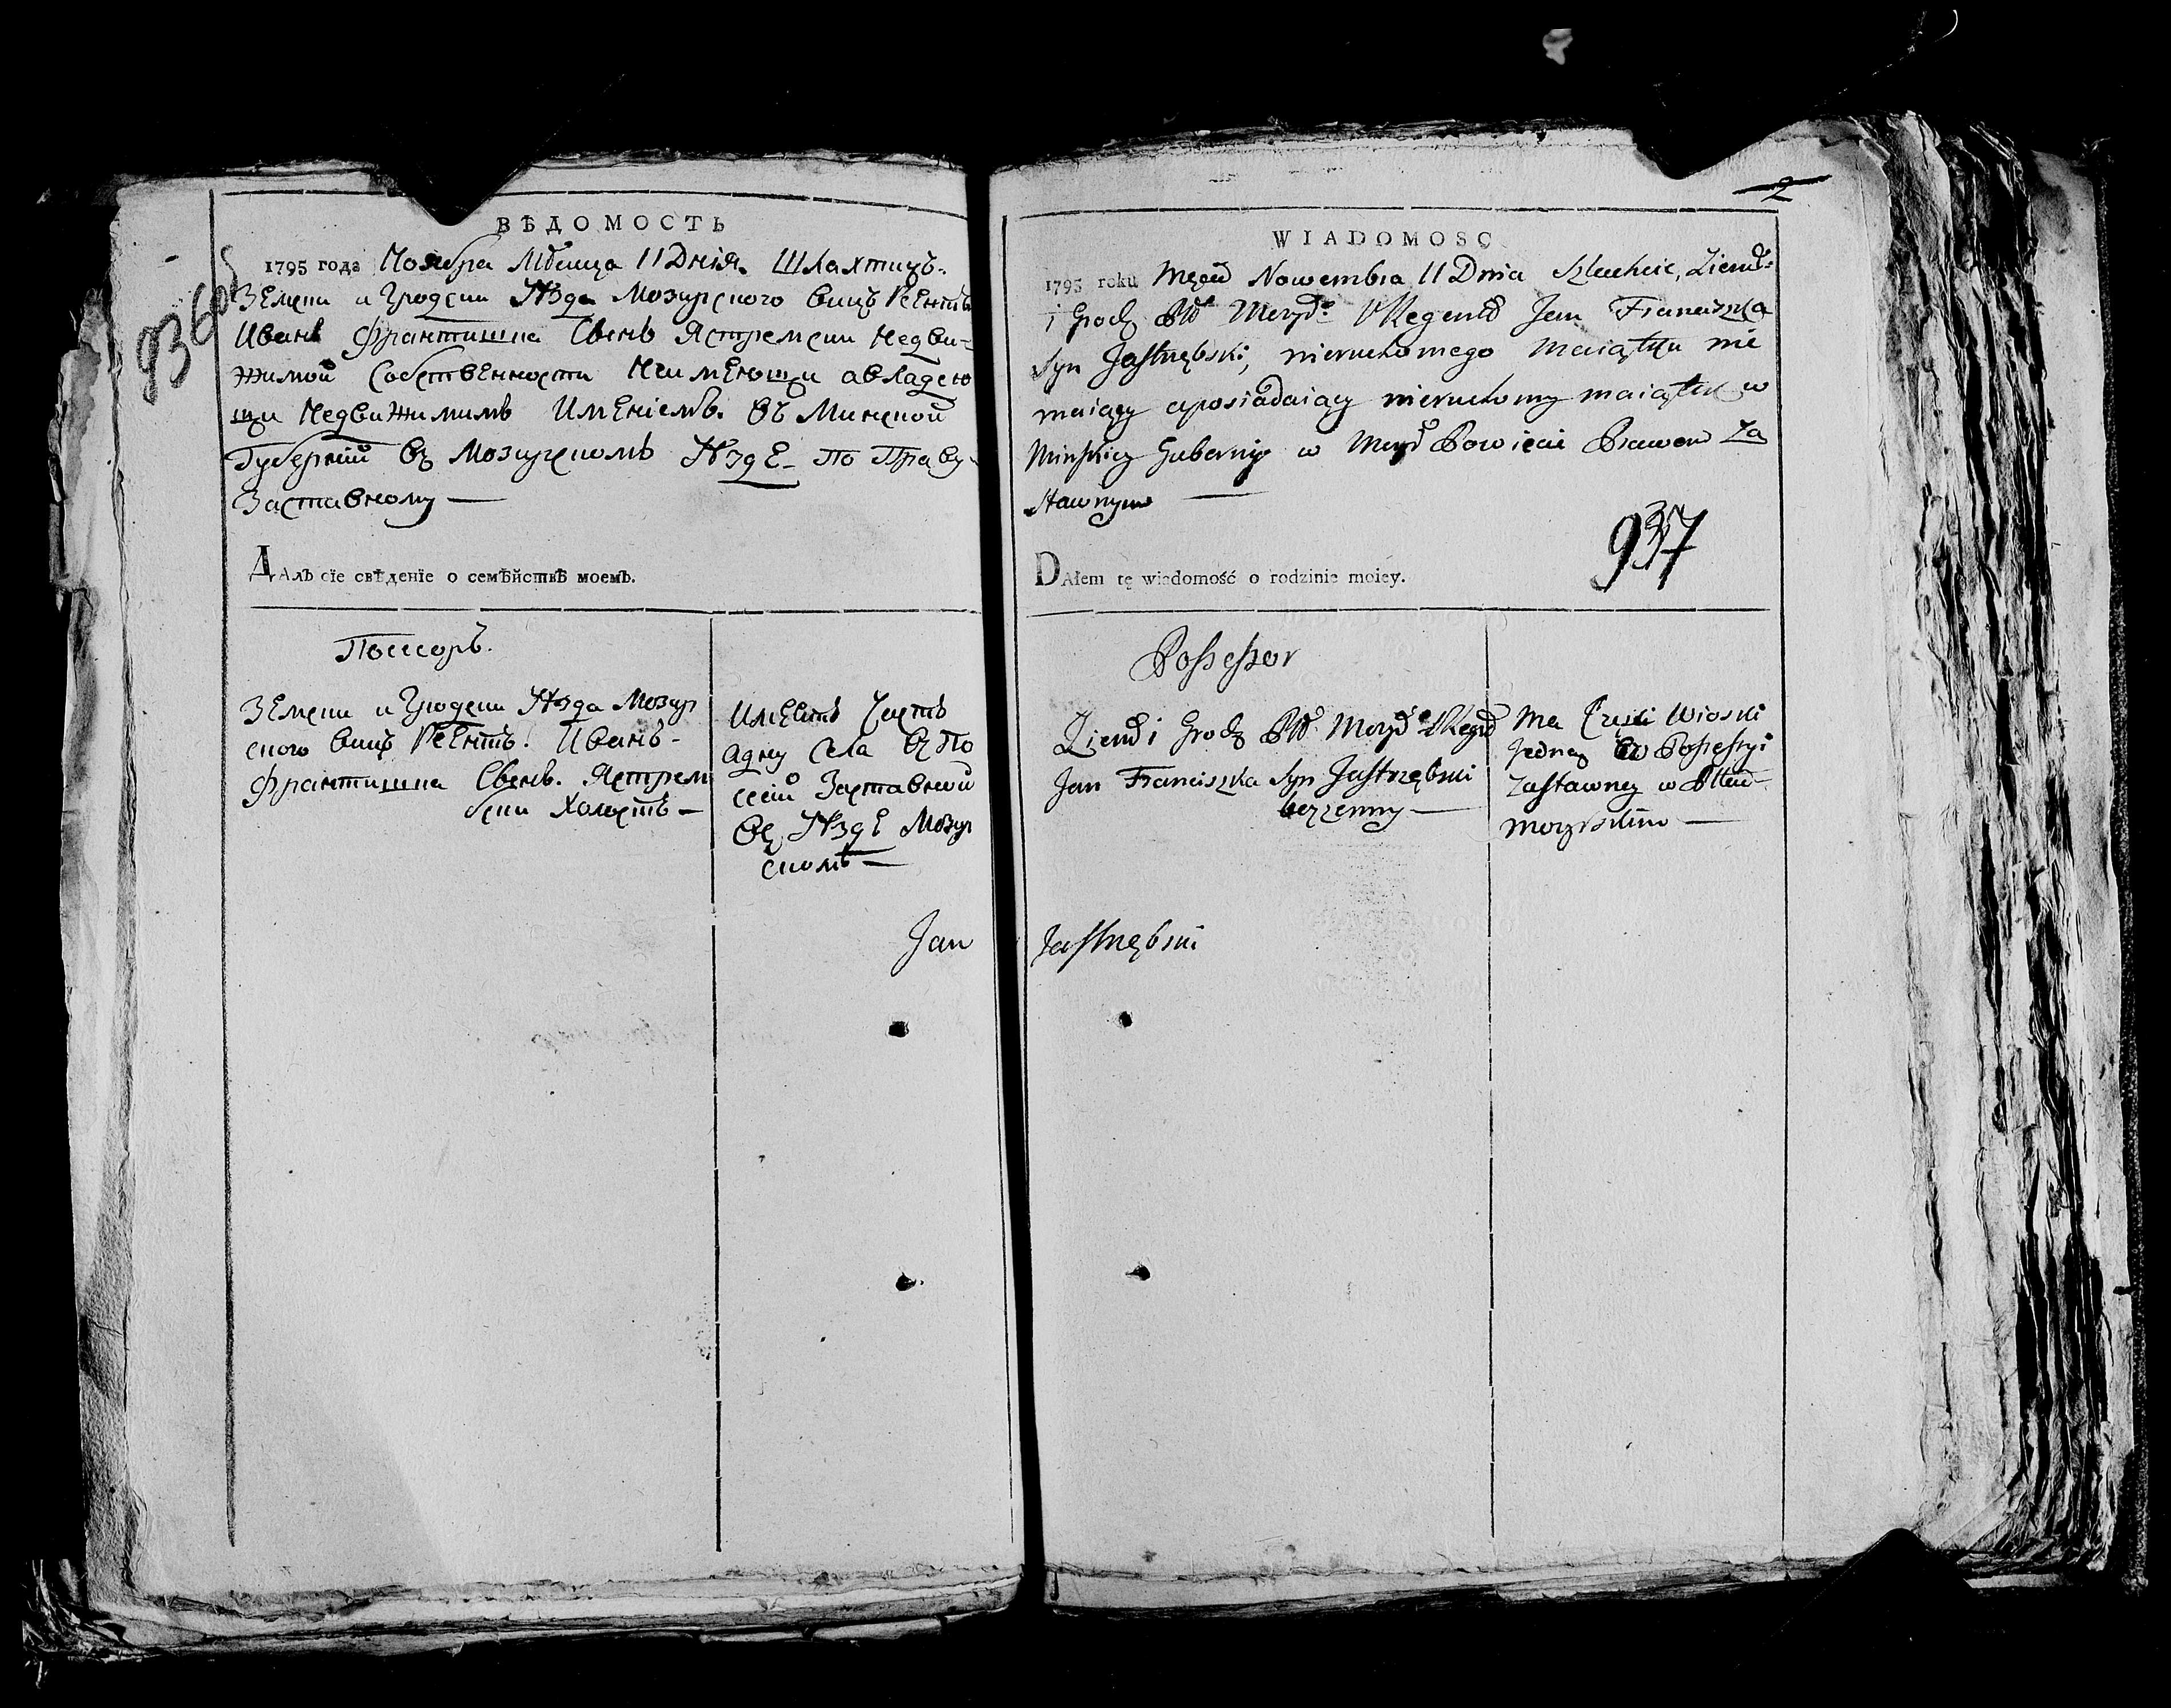 ВѢДОМОСТЬ
1795 года Ноября Мѣсица 11 Днія. Шляхтицъ.
Земски и Гродски Уѣзда Мозирского вицъ Реентъ
Иванъ Франтишка Свенъ Ястремски Недви-
жимой Собственности Неимеющи авладею
щи Недвижимимъ Именіемъ. въ Минской
Губерніи въ Мозирскомъ Уѣзде по Праву
Заставному —
Далъ сїе свѣденїе о семѣйствѣ моемъ.
Поссоръ.
Земски и Гродски Уѣзда Мозир
ского вицъ Реентъ. Иванъ
Франтишка Свенъ. Ястрем
бски Холостъ —
Имеетъ Часть
адну Села въ По
ссесіи Заставной
въ Уѣзде Мозир
скомъ —
2
WIADOMOSC
1795 roku Nowembra 11 Dnia Szlachcic, Ziem:
i Grodz Ptu Mozyr VRegent Jan Franciszka
Syn Jastrzębski, nieruchomego maiątku nie
maiący aposiadaiący nieruchomy maiątek w
Minskiey Gubernij w Mozyr Powiecie Prawem Za
stawnym —
937
DAłem tę wiadomość o rodzinie moiey.
Possessor
Ziem i Grodz Ptu Mozyr VRegent
Jan Franciszka Syn Jastrzębski
bezzenny —
Ma Częsci Wioski
Jedney w Possessyi
Zastawney w Ptcie
Mozyrskim —
Jan Jastrzębski